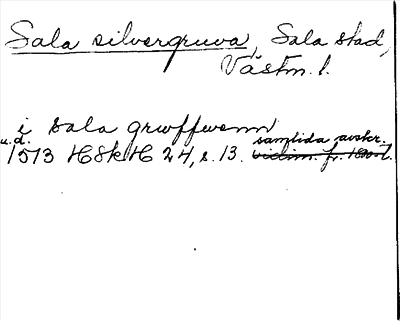 Sala silvergruva, Sala stad,
Västm. l.
i Sala grwffwenn
u.d. samtida avskr.
1513 HSkH 24, s. 13. vidim. fr.